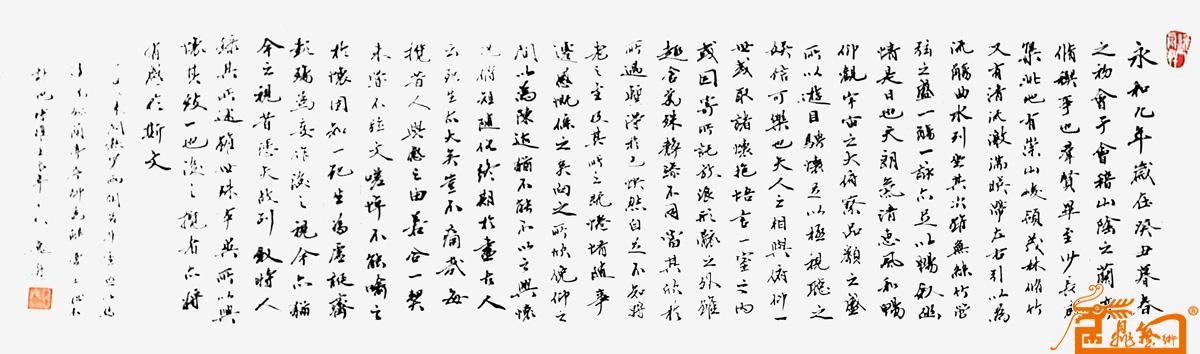 永和九年歲在癸丑暮春
之初會于會稽山陰之蘭亭
脩稧事也羣賢畢至少長咸
集此地有崇山峻領茂林脩竹
又有清流激湍暎帶左右引以為
流觴曲水列坐其次雖無絲竹管
弦之盛一觴一詠亦足以暢敘幽
情是日也天朗氣清惠風和暢
仰觀宇宙之大俯察品類之盛
所以遊目騁懷足以極視聽之
娛信可樂也夫人之相與俯仰一
世或取諸懷抱悟言一室之內
或因寄所託放浪形骸之外雖
趣舍萬殊靜躁不同當其欣於
所遇暫得於己怏然自足不知
老之至及其所之既惓情隨事
遷感慨係之矣向之所欣俛仰之
間以為陳迹猶不能不以之興懷
況脩短隨化終期於盡古人
云死生亦大矣豈不痛哉每
攬昔人興感之由若合一契
未嘗不臨文嗟悼不能喻之
於懷固知一死生為虛誕齊
彭殤為妄作後之視今亦猶
今之視昔悲夫故列敘時人
錄其所述雖世殊事異所以興
懷其致一也後之攬者亦將
有感於斯文